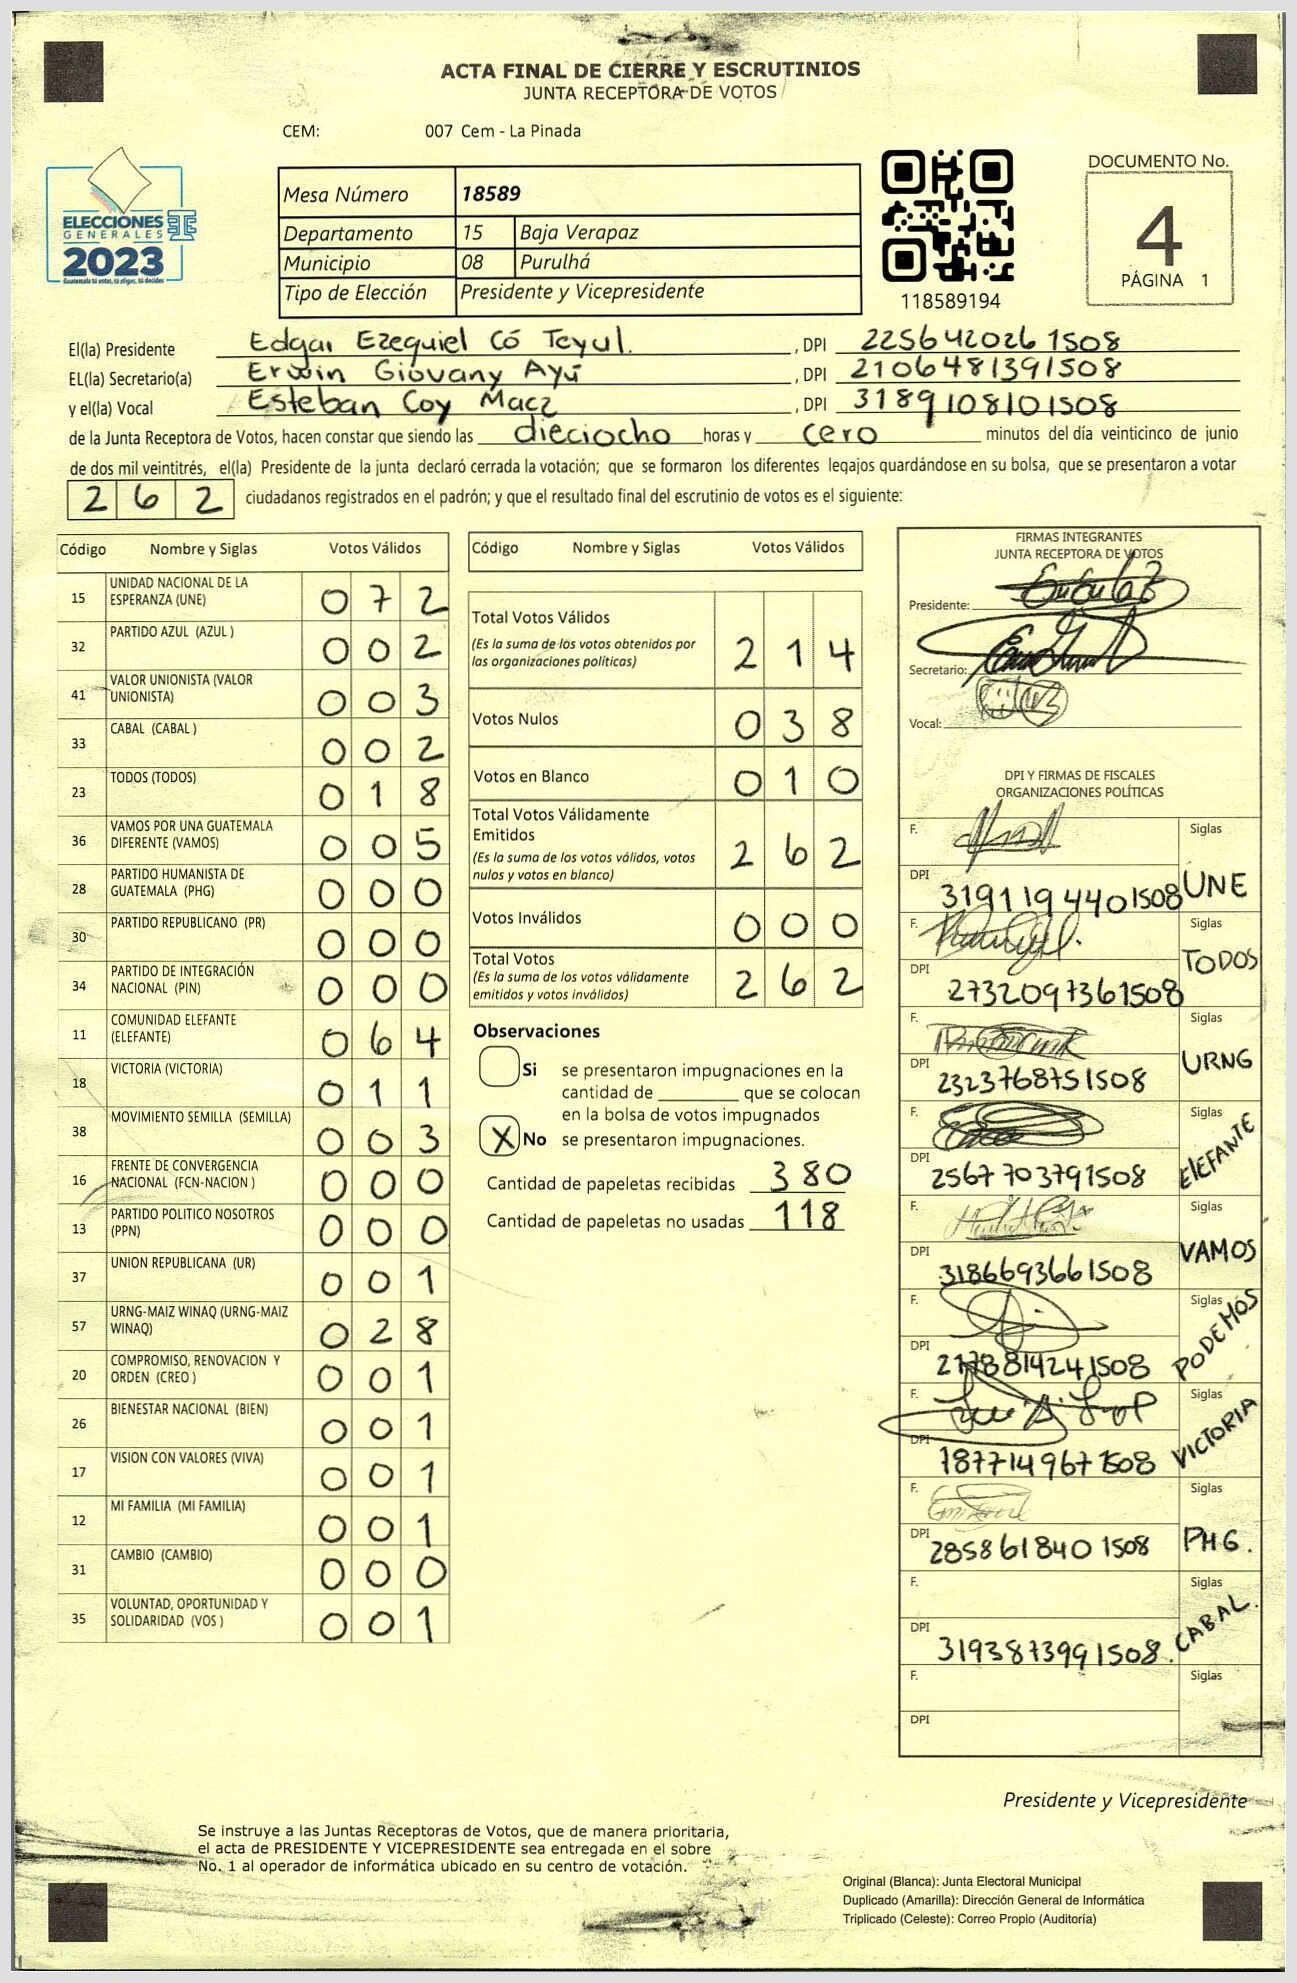 ACTA FINAL DE CIERRE Y ESCRUTINIOS
JUNTA RECEPTORA DE VOTOS
CEM: 007 Cem - La Pinada
ELECCIONES
GENERALES
2023
Guatemala tú votas, tú eliges, tú decides
Mesa Número 18589
Departamento 15 Baja Verapaz
Municipio 08 Purulhá
Tipo de Elección Presidente y Vicepresidente
118589194
DOCUMENTO No.
4
PÁGINA 1
El(la) Presidente Edgar Ezequiel Có Teyul. , DPI 2256420261508
EL(la) Secretario(a) Erwin Giovany Ayú , DPI 2106481391508
y el(la) Vocal Esteban Coy Macz , DPI 3189108101508
de la Junta Receptora de Votos, hacen constar que siendo las dieciocho horas y cero minutos del día veinticinco de junio
de dos mil veintitrés, el(la) Presidente de la junta declaró cerrada la votación; que se formaron los diferentes legajos quardándose en su bolsa, que se presentaron a votar
262 ciudadanos registrados en el padrón; y que el resultado final del escrutinio de votos es el siguiente:
Código Nombre y Siglas Votos Válidos
15 UNIDAD NACIONAL DE LA ESPERANZA (UNE) 072
32 PARTIDO AZUL (AZUL ) 002
41 VALOR UNIONISTA (VALOR UNIONISTA) 003
33 CABAL (CABAL ) 002
23 TODOS (TODOS) 018
36 VAMOS POR UNA GUATEMALA DIFERENTE (VAMOS) 005
28 PARTIDO HUMANISTA DE GUATEMALA (PHG) 000
30 PARTIDO REPUBLICANO (PR) 000
34 PARTIDO DE INTEGRACIÓN NACIONAL (PIN) 000
11 COMUNIDAD ELEFANTE (ELEFANTE) 064
18 VICTORIA (VICTORIA) 011
38 MOVIMIENTO SEMILLA (SEMILLA) 003
16 FRENTE DE CONVERGENCIA NACIONAL (FCN-NACION ) 000
13 PARTIDO POLITICO NOSOTROS (PPN) 000
37 UNION REPUBLICANA (UR) 001
57 URNG-MAIZ WINAQ (URNG-MAIZ WINAQ) 028
20 COMPROMISO, RENOVACION Y ORDEN (CREO ) 001
26 BIENESTAR NACIONAL (BIEN) 001
17 VISION CON VALORES (VIVA) 001
12 MI FAMILIA (MI FAMILIA) 001
31 CAMBIO (CAMBIO) 000
35 VOLUNTAD, OPORTUNIDAD Y SOLIDARIDAD (VOS ) 001
Código Nombre y Siglas Votos Válidos
Total Votos Válidos
(Es la suma de los votos obtenidos por
las organizaciones politicas) 214
Votos Nulos 038
Votos en Blanco 010
Total Votos Válidamente
Emitidos
(Es la suma de los votos válidos, votos
nulos y votos en blanco) 262
Votos Inválidos 000
Total Votos
(Es la suma de los votos válidamente
emitidos y votos inválidos) 262
Observaciones
Si se presentaron impugnaciones en la
cantidad de ________ que se colocan
en la bolsa de votos impugnados
X No se presentaron impugnaciones.
Cantidad de papeletas recibidas 380
Cantidad de papeletas no usadas 118
FIRMAS INTEGRANTES
JUNTA RECEPTORA DE VOTOS
Presidente:
Secretario:
Vocal:
DPI Y FIRMAS DE FISCALES
ORGANIZACIONES POLÍTICAS
F. Siglas
DPI 3191194401508 UNE
F. Siglas
DPI 2732097361508 TODOS
F. Siglas
DPI 2323768751508 URNG
F. Siglas
DPI 2567703791508 ElEFANTE
F. Siglas
DPI 3186693661508 VAMOS
F. Siglas
DPI 2178814241508 PODEMOS
F. Siglas
DPI 1877149671508 VICTORIA
F. Siglas
DPI 2858618401508 PHG.
F. Siglas
DPI 3193873991508. CABAL.
F. Siglas
DPI
Presidente y Vicepresidente
Se instruye a las Juntas Receptoras de Votos, que de manera prioritaria,
el acta de PRESIDENTE Y VICEPRESIDENTE sea entregada en el sobre
No. 1 al operador de informática ubicado en su centro de votación.
Original (Blanca): Junta Electoral Municipal
Duplicado (Amarilla): Dirección General de Informática
Triplicado (Celeste): Correo Propio (Auditoría)